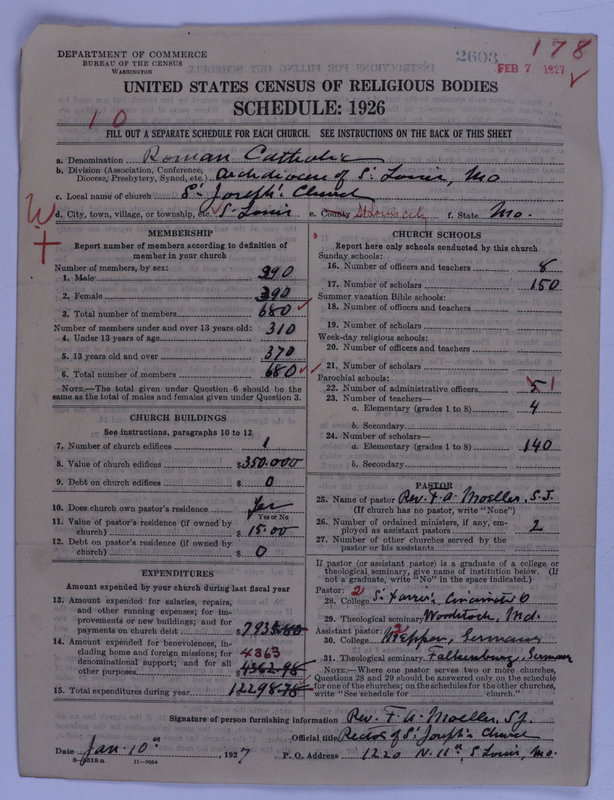 DEPARTMENT OF COMMERCE
BUREAU OF THE CENSUS
WASHINGTON
2603
178
FEB 7 1927
UNITED STATES CENSUS OF RELIGIOUS BODIES
SCHEDULE: 1926
10
FILL OUT A SEPARATE SCHEDULE FOR EACH CHURCH. SEE INSTRUCTIONS ON THE BACK OF THIS SHEET
a. Denomination Roman Catholic
b. Division (Association, Conference, Diocese, Presbytery, Synod, etc.) Archdiocese of St. Louis, Mo
c. Local name of church St. Joseph's Church
d. City, town, village, or township, etc. St. Louis e. County St Louis City f. State Mo.
MEMBERSHIP
Report number of members according to definition of
member in your church
Number of members, by sex:
1. Male 290
2. Female 390
3. Total number of members 680
Number of members under and over 13 years old:
4. Under 13 years of age 310
5. 13 years old and over 370
6. Total number of members 680
NOTE.—The total given under Question 6 should be
the same as the total of males and females given under Question 3.
CHURCH BUILDINGS
See instructions, paragraphs 10 to 12
7. Number of church edifices 1
8. Value of church edifices $350.000
9. Debt on church edifices $0
10. Does church own pastor's residence? Yes
Yes or No
11. Value of pastor's residence (if owned by
church) $15.00
12. Debt on pastor's residence (if owned by
church) $0
EXPENDITURES
Amount expended by your church during last fiscal year
13. Amount expended for salaries, repairs,
and other running expenses; for im-
provements or new buildings; and for
payments on church debt $7935.80
14. Amount expended for benevolences, in-
cluding home and foreign missions; for
denominational support; and for all
other purposes 4363
4362.98
15. Total expenditures during year 12298.78
CHURCH SCHOOLS
Report here only schools conducted by this church
Sunday schools:
16. Number of officers and teachers 8
17. Number of scholars 150
Summer vacation Bible schools:
18. Number of officers and teachers
19. Number of scholars
Week-day religious schools:
20. Number of officers and teachers
21. Number of scholars
Parochial schools:
22. Number of administrative officers 5 1
23. Number of teachers—
a. Elementary (grades 1 to 8) 4
b. Secondary
24. Number of scholars—
a. Elementary (grades 1 to 8) 140
b. Secondary
PASTOR
25. Name of pastor Rev. F. A. Moeller, S.J.
(If church has no pastor, write "None")
26. Number of ordained ministers, if any, em-
ployed as assistant pastors 2
27. Number of other churches served by the
pastor or his assistants
If pastor (or assistant pastor) is a graduate of a college or
theological seminary, give name of institution below. (If
not a graduate, write "No" in the space indicated.)
Pastor: 2
28. College St Xavier's, Cincinnati O
29. Theological seminary Woodstock, Md.
Assistant pastor: 2
30. College Meppen, Germany
31. Theological seminary
NOTE.—Where one pastor serves two or more churches,
Questions 28 and 29 should be answered only on the schedule
for one of the churches; on the schedules for the other churches,
write "See schedule for church."
Signature of person furnishing information Rev. F. A. Moeller, S.J.
Official title Rector of St Joseph's Church
Date Jan. 10th, 1927 P. O. Address 1220 N. 11th, St Louis, Mo.
8-5318 a 11—9084